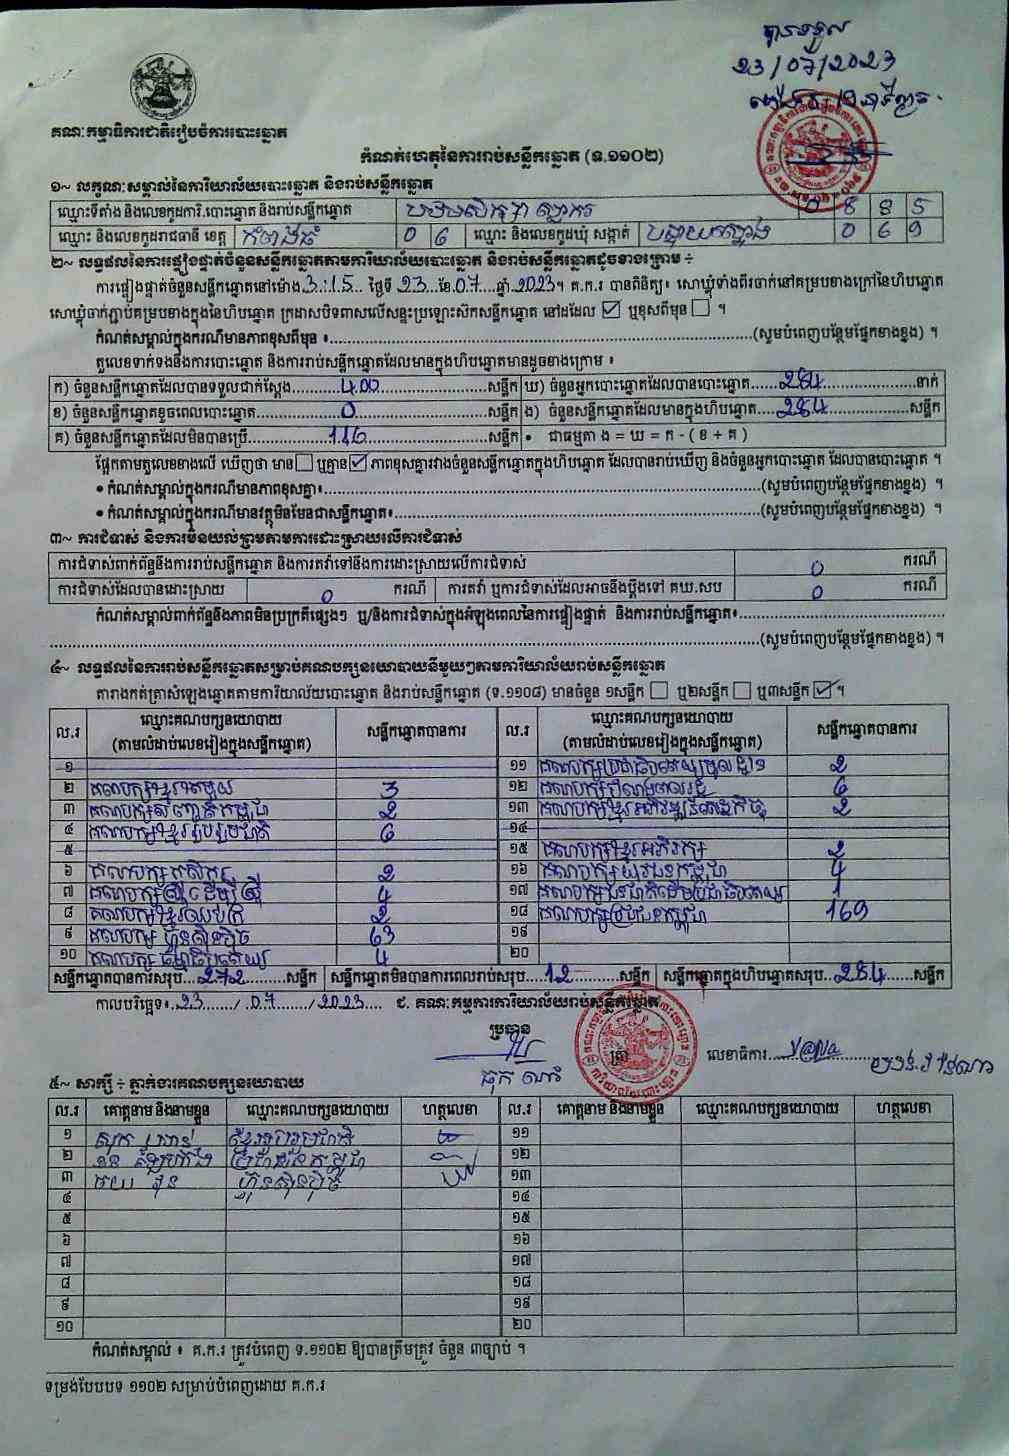 បានទទួល
23/07/2023
គណៈកម្មាធិការជាតិរៀបចំការបោះឆ្នោត
កំណត់ហេតុនៃការរាប់សន្លឹកឆ្នោត (ទ.១១០២)
១~ លក្ខណៈសម្គាល់នៃការិយាល័យបោះឆ្នោត និងរាប់សន្លឹកឆ្នោត
ឈ្មោះទីតាំង និងលេខកូដការិ.បោះឆ្នោត និងរាប់សន្លឹកឆ្នោត បឋមសិក្សា ស្លាករ 0 8 8 5
ឈ្មោះ និងលេខកូដរាជធានី ខេត្ត កំពង់ធំ 0 6 ឈ្មោះ និងលេខកូដឃុំ សង្កាត់ 0 6 9
២~ លទ្ធផលនៃការផ្ទៀងផ្ទាត់ចំនួនសន្លឹកឆ្នោតតាមការិយាល័យបោះឆ្នោត និងរាប់សន្លឹកឆ្នោតដូចខាងក្រោម ÷
ការផ្ទៀងផ្ទាត់ចំនួនសន្លឹកឆ្នោតនៅម៉ោង 3:15 ថ្ងៃទី 23 ខែ 07 ឆ្នាំ 2023 ។ គ.ក.រ បានពិនិត្យ៖ សោឃ្លុំទាំងពីរចាក់នៅគម្របខាងក្រៅនៃហិបឆ្នោត
សោឃ្លុំចាក់ភ្ជាប់គម្របខាងក្នុងនៃហិបឆ្នោត ក្រដាសបិទពាសលើសន្ទះប្រឡោះស៊កសន្លឹកឆ្នោត នៅដដែល ☑ ឬខុសពីមុន ☐ ។
កំណត់សម្គាល់ក្នុងករណីមានភាពខុសពីមុន ៖ (សូមបំពេញបន្ថែមផ្នែកខាងខ្នង) ។
តួលេខទាក់ទងនឹងការបោះឆ្នោត និងការរាប់សន្លឹកឆ្នោតដែលមានក្នុងហិបឆ្នោតមានដូចខាងក្រោម ៖
ក) ចំនួនសន្លឹកឆ្នោតដែលបានទទួលជាក់ស្តែង 400 សន្លឹក ឃ) ចំនួនអ្នកបោះឆ្នោតដែលបានបោះឆ្នោត 284 នាក់
ខ) ចំនួនសន្លឹកឆ្នោតខូចពេលបោះឆ្នោត 0 សន្លឹក ង) ចំនួនសន្លឹកឆ្នោតដែលមានក្នុងហិបឆ្នោត 284 សន្លឹក
គ) ចំនួនសន្លឹកឆ្នោតដែលមិនបានប្រើ 116 សន្លឹក • ជាធម្មតា ង = ឃ = ក - ( ខ + គ )
ផ្អែកតាមតួលេខខាងលើ ឃើញថា មាន ☐ ឬគ្មាន ☑ ភាពខុសគ្នារវាងចំនួនសន្លឹកឆ្នោតក្នុងហិបឆ្នោត ដែលបានរាប់ឃើញ និងចំនួនអ្នកបោះឆ្នោត ដែលបានបោះឆ្នោត ។
• កំណត់សម្គាល់ក្នុងករណីមានភាពខុសគ្នា៖ (សូមបំពេញបន្ថែមផ្នែកខាងខ្នង) ។
• កំណត់សម្គាល់ក្នុងករណីមានវត្ថុមិនមែនជាសន្លឹកឆ្នោត៖ (សូមបំពេញបន្ថែមផ្នែកខាងខ្នង) ។
៣~ ការជំទាស់ និងការមិនយល់ព្រមតាមការដោះស្រាយលើការជំទាស់
ការជំទាស់ពាក់ព័ន្ធនឹងការរាប់សន្លឹកឆ្នោត និងការតវ៉ាទៅនឹងការដោះស្រាយលើការជំទាស់ 0 ករណី
ការជំទាស់ដែលបានដោះស្រាយ 0 ករណី ការតវ៉ា ឬការជំទាស់ដែលអាចនឹងប្តឹងទៅ គឃ.សប 0 ករណី
កំណត់សម្គាល់ពាក់ព័ន្ធនឹងភាពមិនប្រក្រតីផ្សេងៗ ឬ/និងការជំទាស់ក្នុងអំឡុងពេលនៃការផ្ទៀងផ្ទាត់ និងការរាប់សន្លឹកឆ្នោត៖
(សូមបំពេញបន្ថែមផ្នែកខាងខ្នង) ។
៤~ លទ្ធផលនៃការរាប់សន្លឹកឆ្នោតសម្រាប់គណបក្សនយោបាយនីមួយៗតាមការិយាល័យរាប់សន្លឹកឆ្នោត
តារាងកត់ត្រាសំឡេងឆ្នោតតាមការិយាល័យបោះឆ្នោត និងរាប់សន្លឹកឆ្នោត (ទ.១១០៨) មានចំនួន ១សន្លឹក ☐ ឬ២សន្លឹក ☐ ឬ៣សន្លឹក ☑ ។
ល.រ ឈ្មោះគណបក្សនយោបាយ (តាមលំដាប់លេខរៀងក្នុងសន្លឹកឆ្នោត) សន្លឹកឆ្នោតបានការ ល.រ ឈ្មោះគណបក្សនយោបាយ (តាមលំដាប់លេខរៀងក្នុងសន្លឹកឆ្នោត) សន្លឹកឆ្នោតបានការ
១ ១១ គណបក្សប្រជាធិបតេយ្យមូលដ្ឋាន 2
២ គណបក្សខ្មែរតែមួយ 3 ១២ 6
៣ គណបក្សសញ្ជាតិកម្ពុជា 2 ១៣ គណបក្សខ្មែរអភិវឌ្ឍន៍សេដ្ឋកិច្ច 2
៤ គណបក្សខ្មែររួបរួមជាតិ 6 ១៤
៥ ១៥ គណបក្សខ្មែរអភិរក្ស 2
៦ គណបក្សកសិករ 2 ១៦ គណបក្សយុវជនកម្ពុជា 4
៧ គណបក្សស្ត្រីដើម្បីស្ត្រី 4 ១៧ គណបក្សជនជាតិដើមប្រជាធិបតេយ្យ 1
៨ គណបក្សខ្មែរឈប់ក្រ 2 ១៨ គណបក្សប្រជាជនកម្ពុជា 169
៩ គណបក្ស ហ្វ៊ុនស៊ិនប៉ិច 63 ១៩
១០ គណបក្ស ធម្មាធិបតេយ្យ 4 ២០
សន្លឹកឆ្នោតបានការសរុប 272 សន្លឹក សន្លឹកឆ្នោតមិនបានការពេលរាប់សរុប 12 សន្លឹក សន្លឹកឆ្នោតក្នុងហិបឆ្នោតសរុប 284 សន្លឹក
កាលបរិច្ឆេទ៖ 23 / 07 / 2023 ជ. គណៈកម្មការការិយាល័យរាប់សន្លឹកឆ្នោត
ប្រធាន ត្រា លេខាធិការ
៥~ សាក្សី ÷ ភ្នាក់ងារគណបក្សនយោបាយ
ល.រ គោត្តនាម និងនាមខ្លួន ឈ្មោះគណបក្សនយោបាយ ហត្ថលេខា ល.រ គោត្តនាម និងនាមខ្លួន ឈ្មោះគណបក្សនយោបាយ ហត្ថលេខា
១ ខ្មែររួបរួមជាតិ ១១
២ ប្រជាជនកម្ពុជា ១២
៣ ហ្វ៊ុនស៊ិនប៉ិច ១៣
៤ ១៤
៥ ១៥
៦ ១៦
៧ ១៧
៨ ១៨
៩ ១៩
១០ ២០
កំណត់សម្គាល់ ៖ គ.ក.រ ត្រូវបំពេញ ទ.១១០២ ឱ្យបានត្រឹមត្រូវ ចំនួន ៣ច្បាប់ ។
ទម្រង់បែបបទ ១១០២ សម្រាប់បំពេញដោយ គ.ក.រ